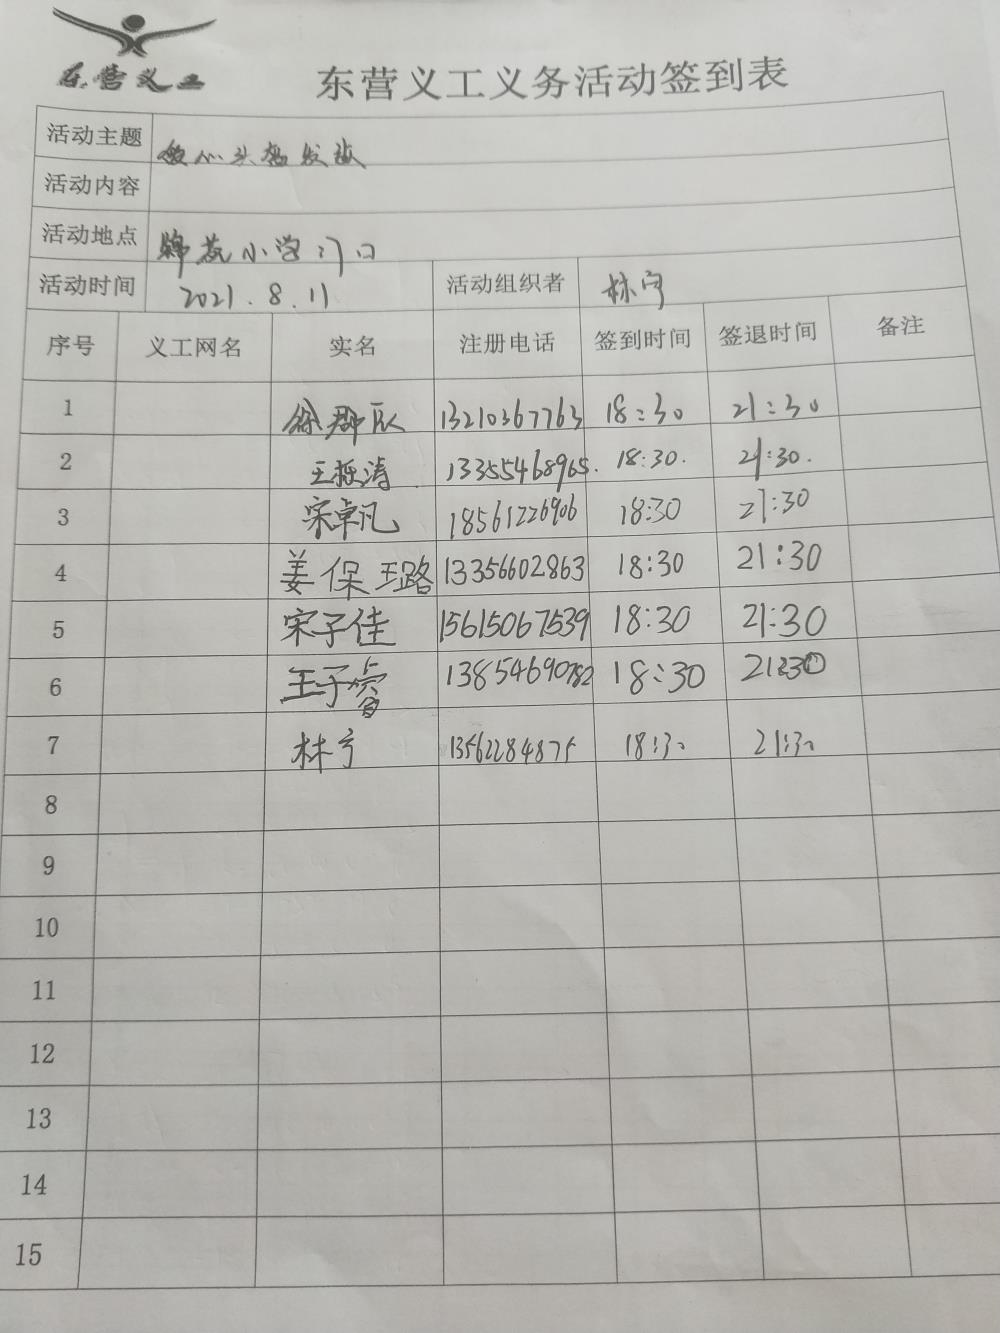 东营义工
东营义工义务活动签到表
活动主题 爱心头盔发放
活动内容
活动地点 锦苑小学门口
活动时间 2021.8.11 活动组织者 林宁
序号 义工网名 实名 注册电话 签到时间 签退时间 备注
1 徐郡 13210367763 18:30 21:30
2 王栎涛 13355468965. 18:30. 21:30.
3 宋卓凡 18561226906 18:30 21:30
4 姜保璐 13356602863 18:30 21:30
5 宋子佳 15615067539 18:30 21:30
6 王子睿 13854690782 18:30 21:30
7 林宁 13562284875 18:30 21:30
8
9
10
11
12
13
14
15